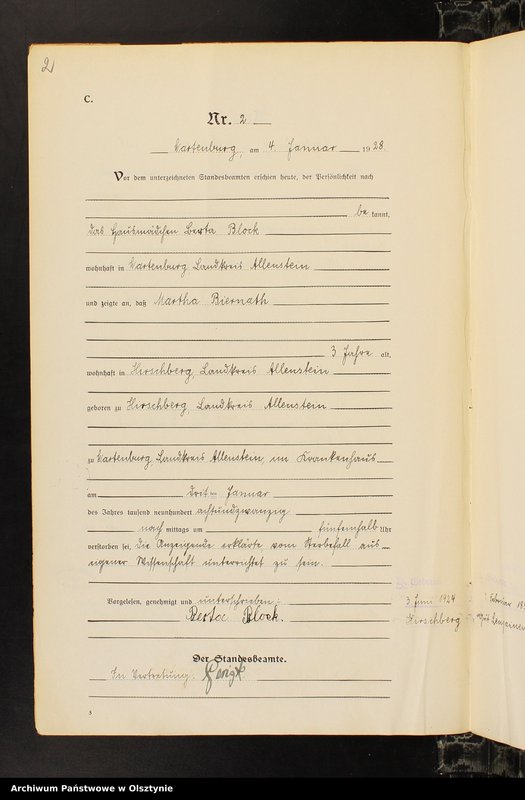 2
C.
Nr. 2
Wartenburg, am 4. Januar 1928.
Vor dem unterzeichneten Standesbeamten erschien heute, der Persönlichkeit nach
be kannt,
das Hausmädchen Berta Block
wohnhaft in Wartenburg Landkreis Allenstein
und zeigte an, daß Martha Biernath
3 Jahre alt,
wohnhaft in Hirschberg, Landkreis Allenstein
geboren zu Hirschberg, Landkreis Allenstein
zu Wartenburg, Landkreis Allenstein, im Krankenhaus
am dritten Januar
des Jahres tausend neunhundert achtundzwanzig
nach mittags um fünfeinhalb Uhr
verstorben sei, die Anzeigende erklärte vom Sterbefall aus
eigener Wissenschaft unterrichtet zu sein.
Vorgelesen, genehmigt und unterschrieben:
Berta Block.
Der Standesbeamte.
In Vertretung:
3. Juni 1924
Hirschberg
Februar
3
Archiwum Państwowe w Olsztynie